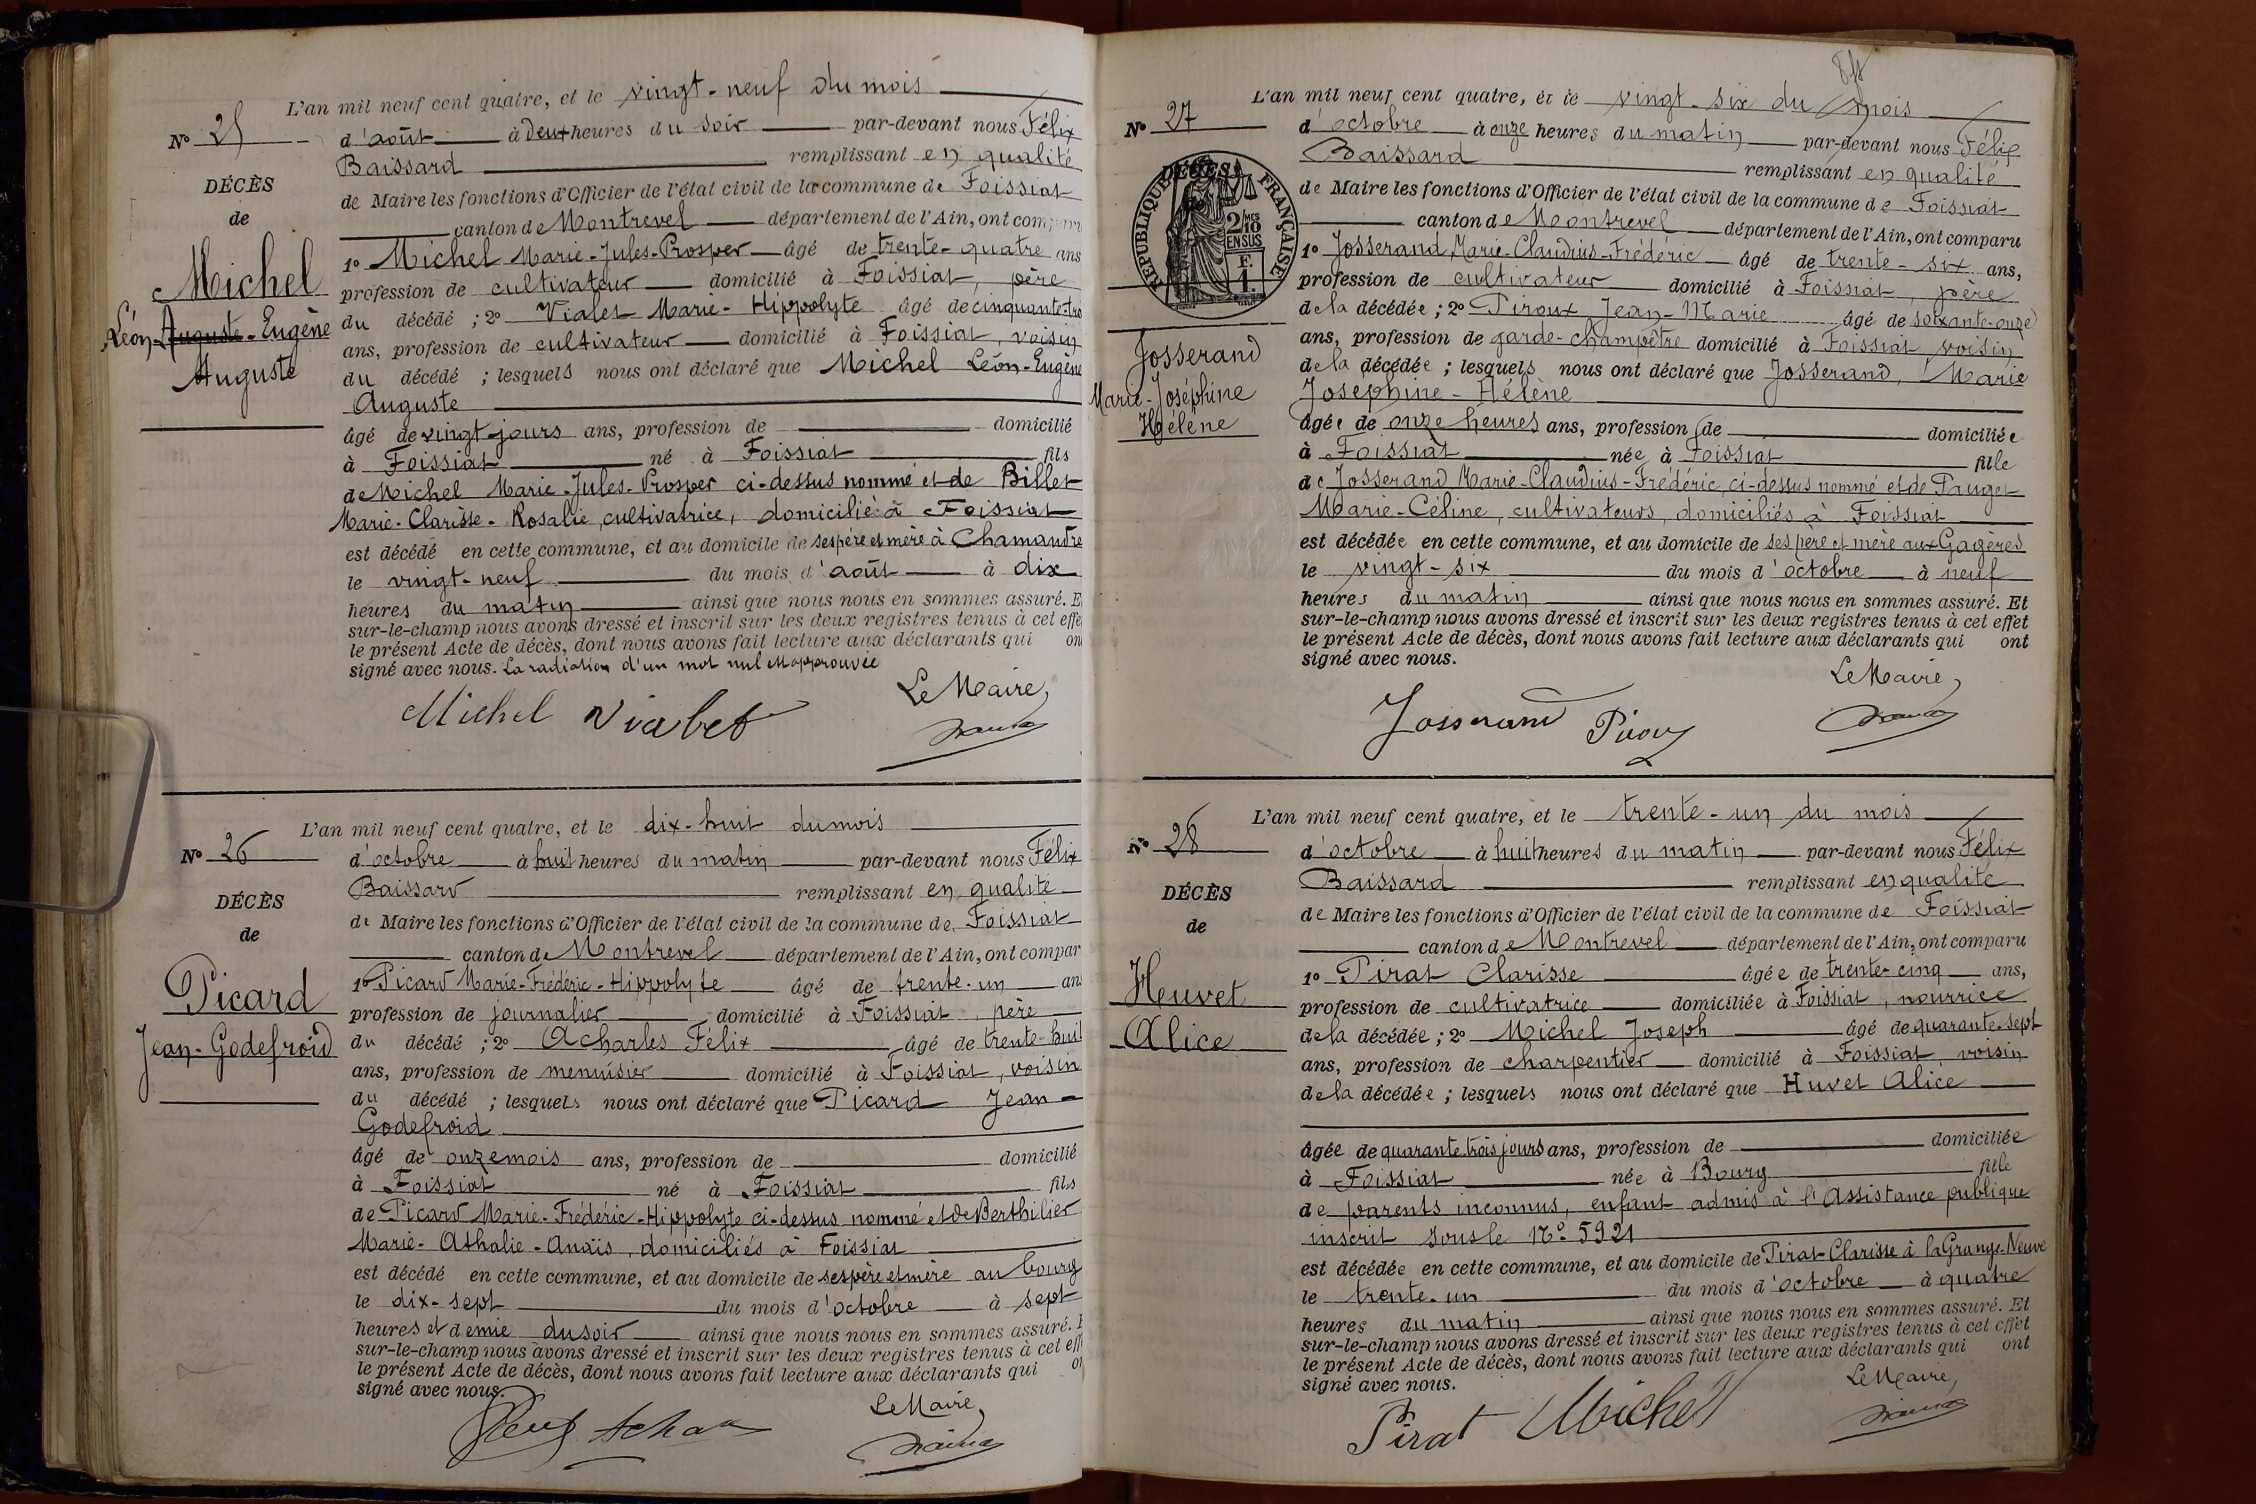 L'an mil neuf cent quatre, et le vingt-neuf du mois
N° 25
d'août à Deux heures du soir par-devant nous Félix
Baissard remplissant en qualité
DÉCÈS
de Maire les fonctions d'Officier de l'état civil de la commune de Foissiat
de
canton de Montrevel département de l'Ain, ont comparu
Michel
1° Michel Marie-Jules-Prosper âgé de trente-quatre ans
profession de cultivateur domicilié à Foissiat, père
Léon-Auguste-Eugène
du décédé ; 2° Vialet Marie-Hippolyte âgé de cinquante-tro
ans, profession de cultivateur domicilié à Foissiat, voisin
Auguste
du décédé ; lesquels nous ont déclaré que Michel Léon-Eugène
Auguste
âgé de vingt jours ans, profession de domicilié
à Foissiat né à Foissiat fils
de Michel Marie-Jules-Prosper ci-dessus nommé et de Billet
Marie-Clarisse-Rosalie, cultivatrice, domiciliée à Foissiat
est décédé en cette commune, et au domicile de ses père et mère à Chamandre
le vingt-neuf du mois d'août à dix
heures du matin ainsi que nous nous en sommes assuré. E
sur-le-champ nous avons dressé et inscrit sur les deux registres tenus à cet effe
le présent Acte de décès, dont nous avons fait lecture aux déclarants qui ont
signé avec nous. La radiation d'un mot nul est approuvée
Le Maire,
Michel Vialet
L'an mil neuf cent quatre, et le dix-huit du mois
N° 26
d'octobre à huit heures du matin par-devant nous Félix
Baissard remplissant en qualité
DÉCÈS
de Maire les fonctions d'Officier de l'état civil de la commune de Foissiat
de
canton de Montrevel département de l'Ain, ont compar
Picard
1° Picard Marie-Frédéric-Hippolyte âgé de trente-un ans
profession de journalier domicilié à Foissiat, père
Jean-Godefroid
du décédé ; 2° Acharles Félix âgé de trente-huit
ans, profession de menuisier domicilié à Foissiat, voisin
du décédé ; lesquels nous ont déclaré que Picard Jean-
Godefroid
âgé de onze mois ans, profession de domicilié
à Foissiat né à Foissiat fils
de Picard Marie-Frédéric-Hippolyte ci-dessus nommé et de Berthilier
Marie-Athalie-Anaïs, domiciliés à Foissiat
est décédé en cette commune, et au domicile de ses père et mère au bourg
le dix-sept du mois d'octobre à sept
heures et demie du soir ainsi que nous nous en sommes assuré. E
sur-le-champ nous avons dressé et inscrit sur les deux registres tenus à cet eff
le présent Acte de décès, dont nous avons fait lecture aux déclarants qui on
signé avec nous.
Le Maire,
L'an mil neuf cent quatre, et le vingt-six du mois
N° 27
d'octobre à onze heures du matin par-devant nous Félix
Baissard remplissant en qualité
DÉCÈS
RÉPUBLIQUE FRANÇAISE
2/10 MES
EN SUS
F.
1.
de Maire les fonctions d'Officier de l'état civil de la commune de Foissiat
canton de Montrevel département de l'Ain, ont comparu
1° Josserand, Marie-Claudius-Frédéric âgé de trente-six ans,
profession de cultivateur domicilié à Foissiat, père
de la décédée ; 2° Piroux Jean-Marie âgé de soixante-onze
Josserand
ans, profession de garde-champêtre domicilié à Foissiat voisin
de la décédée ; lesquels nous ont déclaré que Josserand, Marie
Marie-Joséphine
Josephine-Hélène
Hélène
âgée de onze heures ans, profession de domiciliée
à Foissiat née à Foissiat fille
de Josserand Marie-Claudius-Frédéric, ci-dessus nommé et de Pauget
Marie-Céline, cultivateurs, domiciliés à Foissiat
est décédée en cette commune, et au domicile de ses père et mère aux Gagères
le vingt-six du mois d'octobre à neuf
heures du matin ainsi que nous nous en sommes assuré. Et
sur-le-champ nous avons dressé et inscrit sur les deux registres tenus à cet effet
le présent Acte de décès, dont nous avons fait lecture aux déclarants qui ont
signé avec nous.
Le Maire,
Josserand Piroux
L'an mil neuf cent quatre, et le trente-un du mois
N° 28
d'octobre à huit heures du matin par-devant nous Félix
Baissard remplissant en qualité
DÉCÈS
de Maire les fonctions d'Officier de l'état civil de la commune de Foissiat
de
canton de Montrevel département de l'Ain, ont comparu
1° Pirat Clarisse âgée de trente-cinq ans,
Heuvet
profession de cultivatrice domiciliée à Foissiat, nourrice
Alice
de la décédée ; 2° Michel Joseph âgé de quarante-sept
ans, profession de charpentier domicilié à Foissiat, voisin
de la décédée ; lesquels nous ont déclaré que Huvet Alice
âgée de quarante trois jours ans, profession de domiciliée
à Foissiat née à Bourg fille
de parents inconnus, enfant admis à l'Assistance publique
inscrit sous le N° 5921
est décédée en cette commune, et au domicile de Pirat Clarisse à la Grange-Neuve
le trente-un du mois d'octobre à quatre
heures du matin ainsi que nous nous en sommes assuré. Et
sur-le-champ nous avons dressé et inscrit sur les deux registres tenus à cet effet
le présent Acte de décès, dont nous avons fait lecture aux déclarants qui ont
signé avec nous.
Le Maire,
Pirat Michel